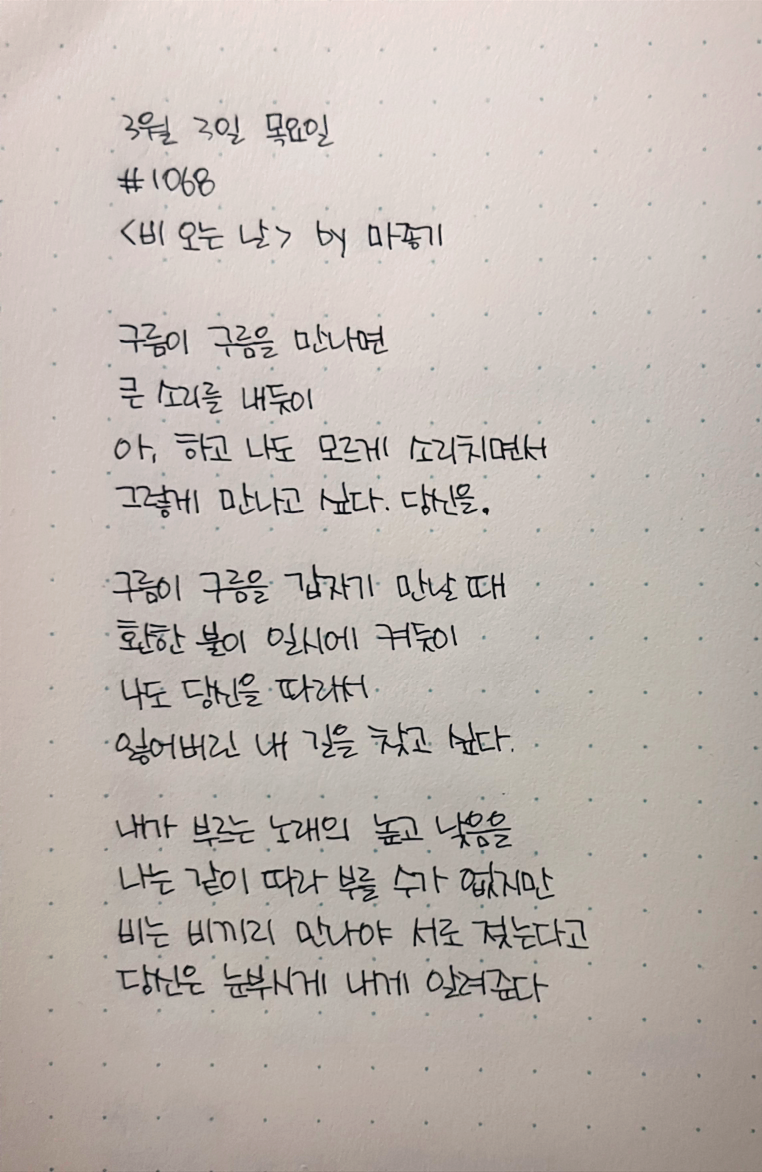 3월 3일 목요일
#1068
<비 오는 날> by 마종기
구름이 구름을 만나면
큰 소리를 내듯이
아, 하고 나도 모르게 소리치면서
그렇게 만나고 싶다. 당신을.
구름이 구름을 갑자기 만날 때
환한 불이 일시에 켜듯이
나도 당신을 따라서
잃어버린 내 길을 찾고 싶다.
내가 부르는 노래의 높고 낮음을
나는 같이 따라 부를 수가 없지만
비는 비끼리 만나야 서로 젖는다고
당신은 눈부시게 내게 알려준다